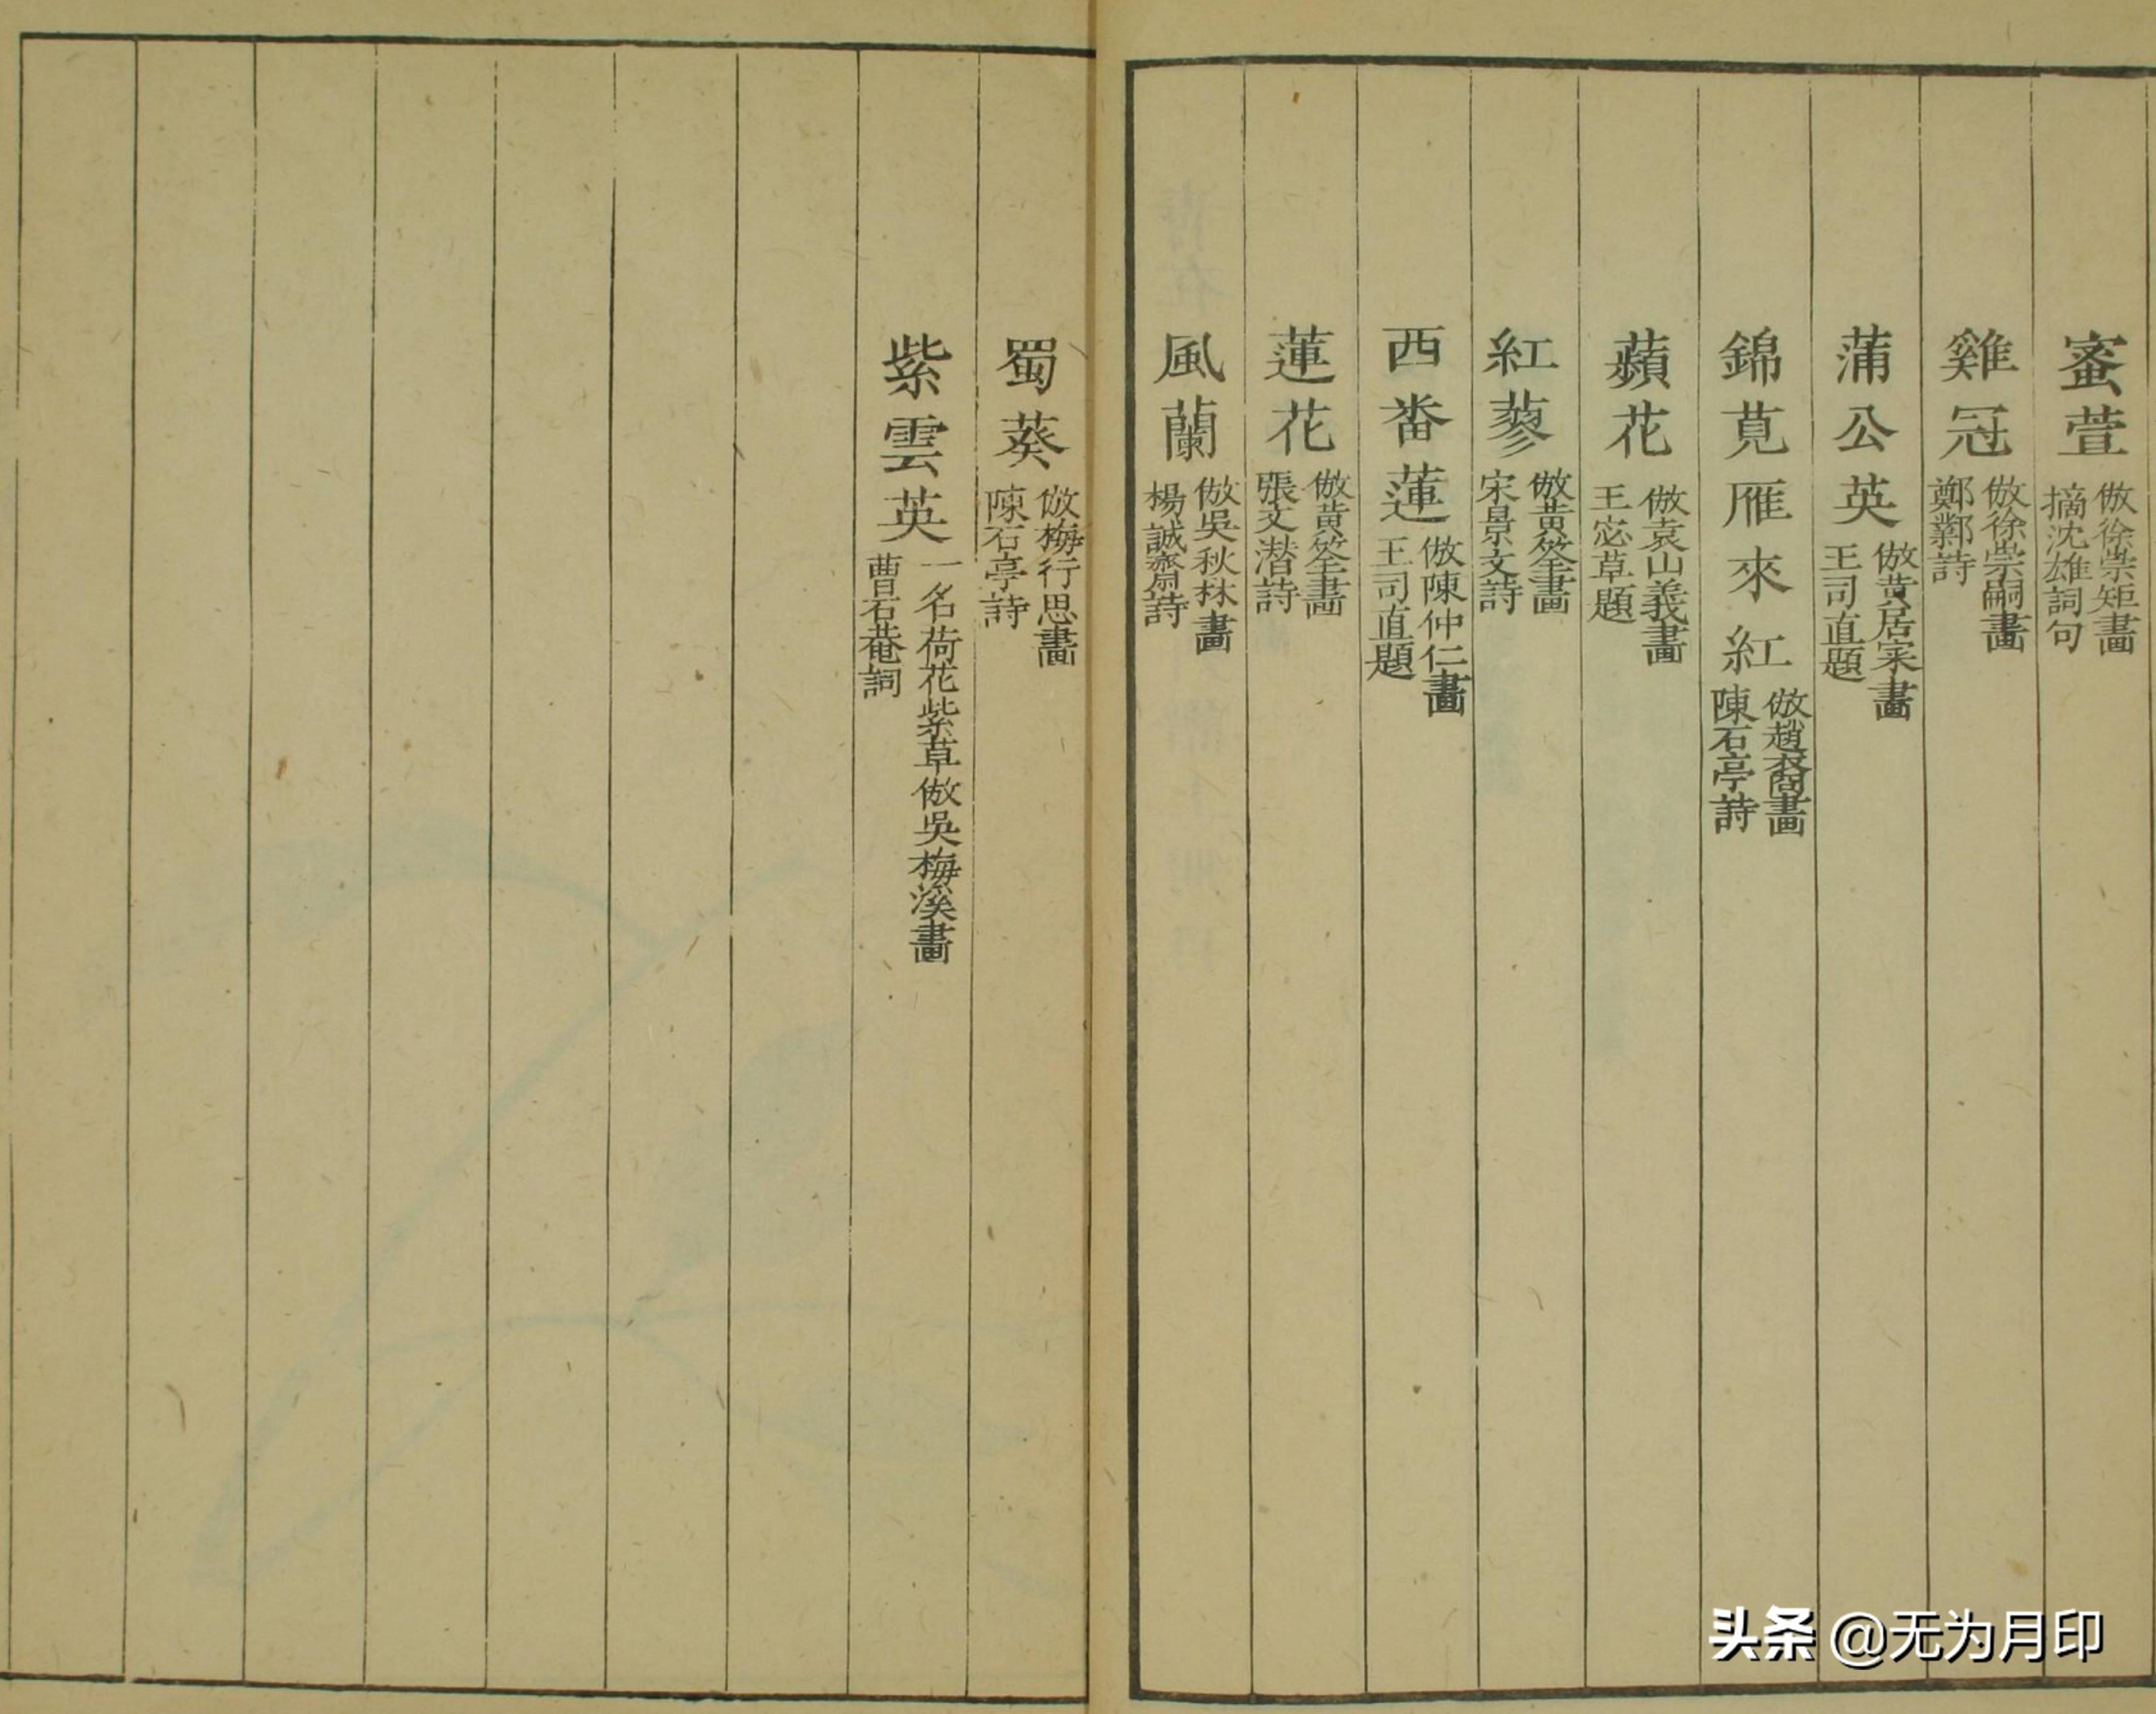 蜜萱 倣徐崇矩畫 摘沈雄詞句
雞冠 倣徐崇嗣畫 鄭鄴詩
蒲公英 倣黃居寀畫 王司直題
錦莧雁來紅 倣趙裔畫 陳石亭詩
蘋花 倣袁山義畫 王宓草題
紅蓼 倣黃筌畫 宋景文詩
西番蓮 倣陳仲仁畫 王司直題
蓮花 倣黃筌畫 張文潛詩
風蘭 倣吳秋林畫 楊誠齋詩
蜀葵 倣梅行思畫 陳石亭詩
紫雲英 一名荷花紫草倣吳梅溪畫 曹石菴詞
头条 @无为月印